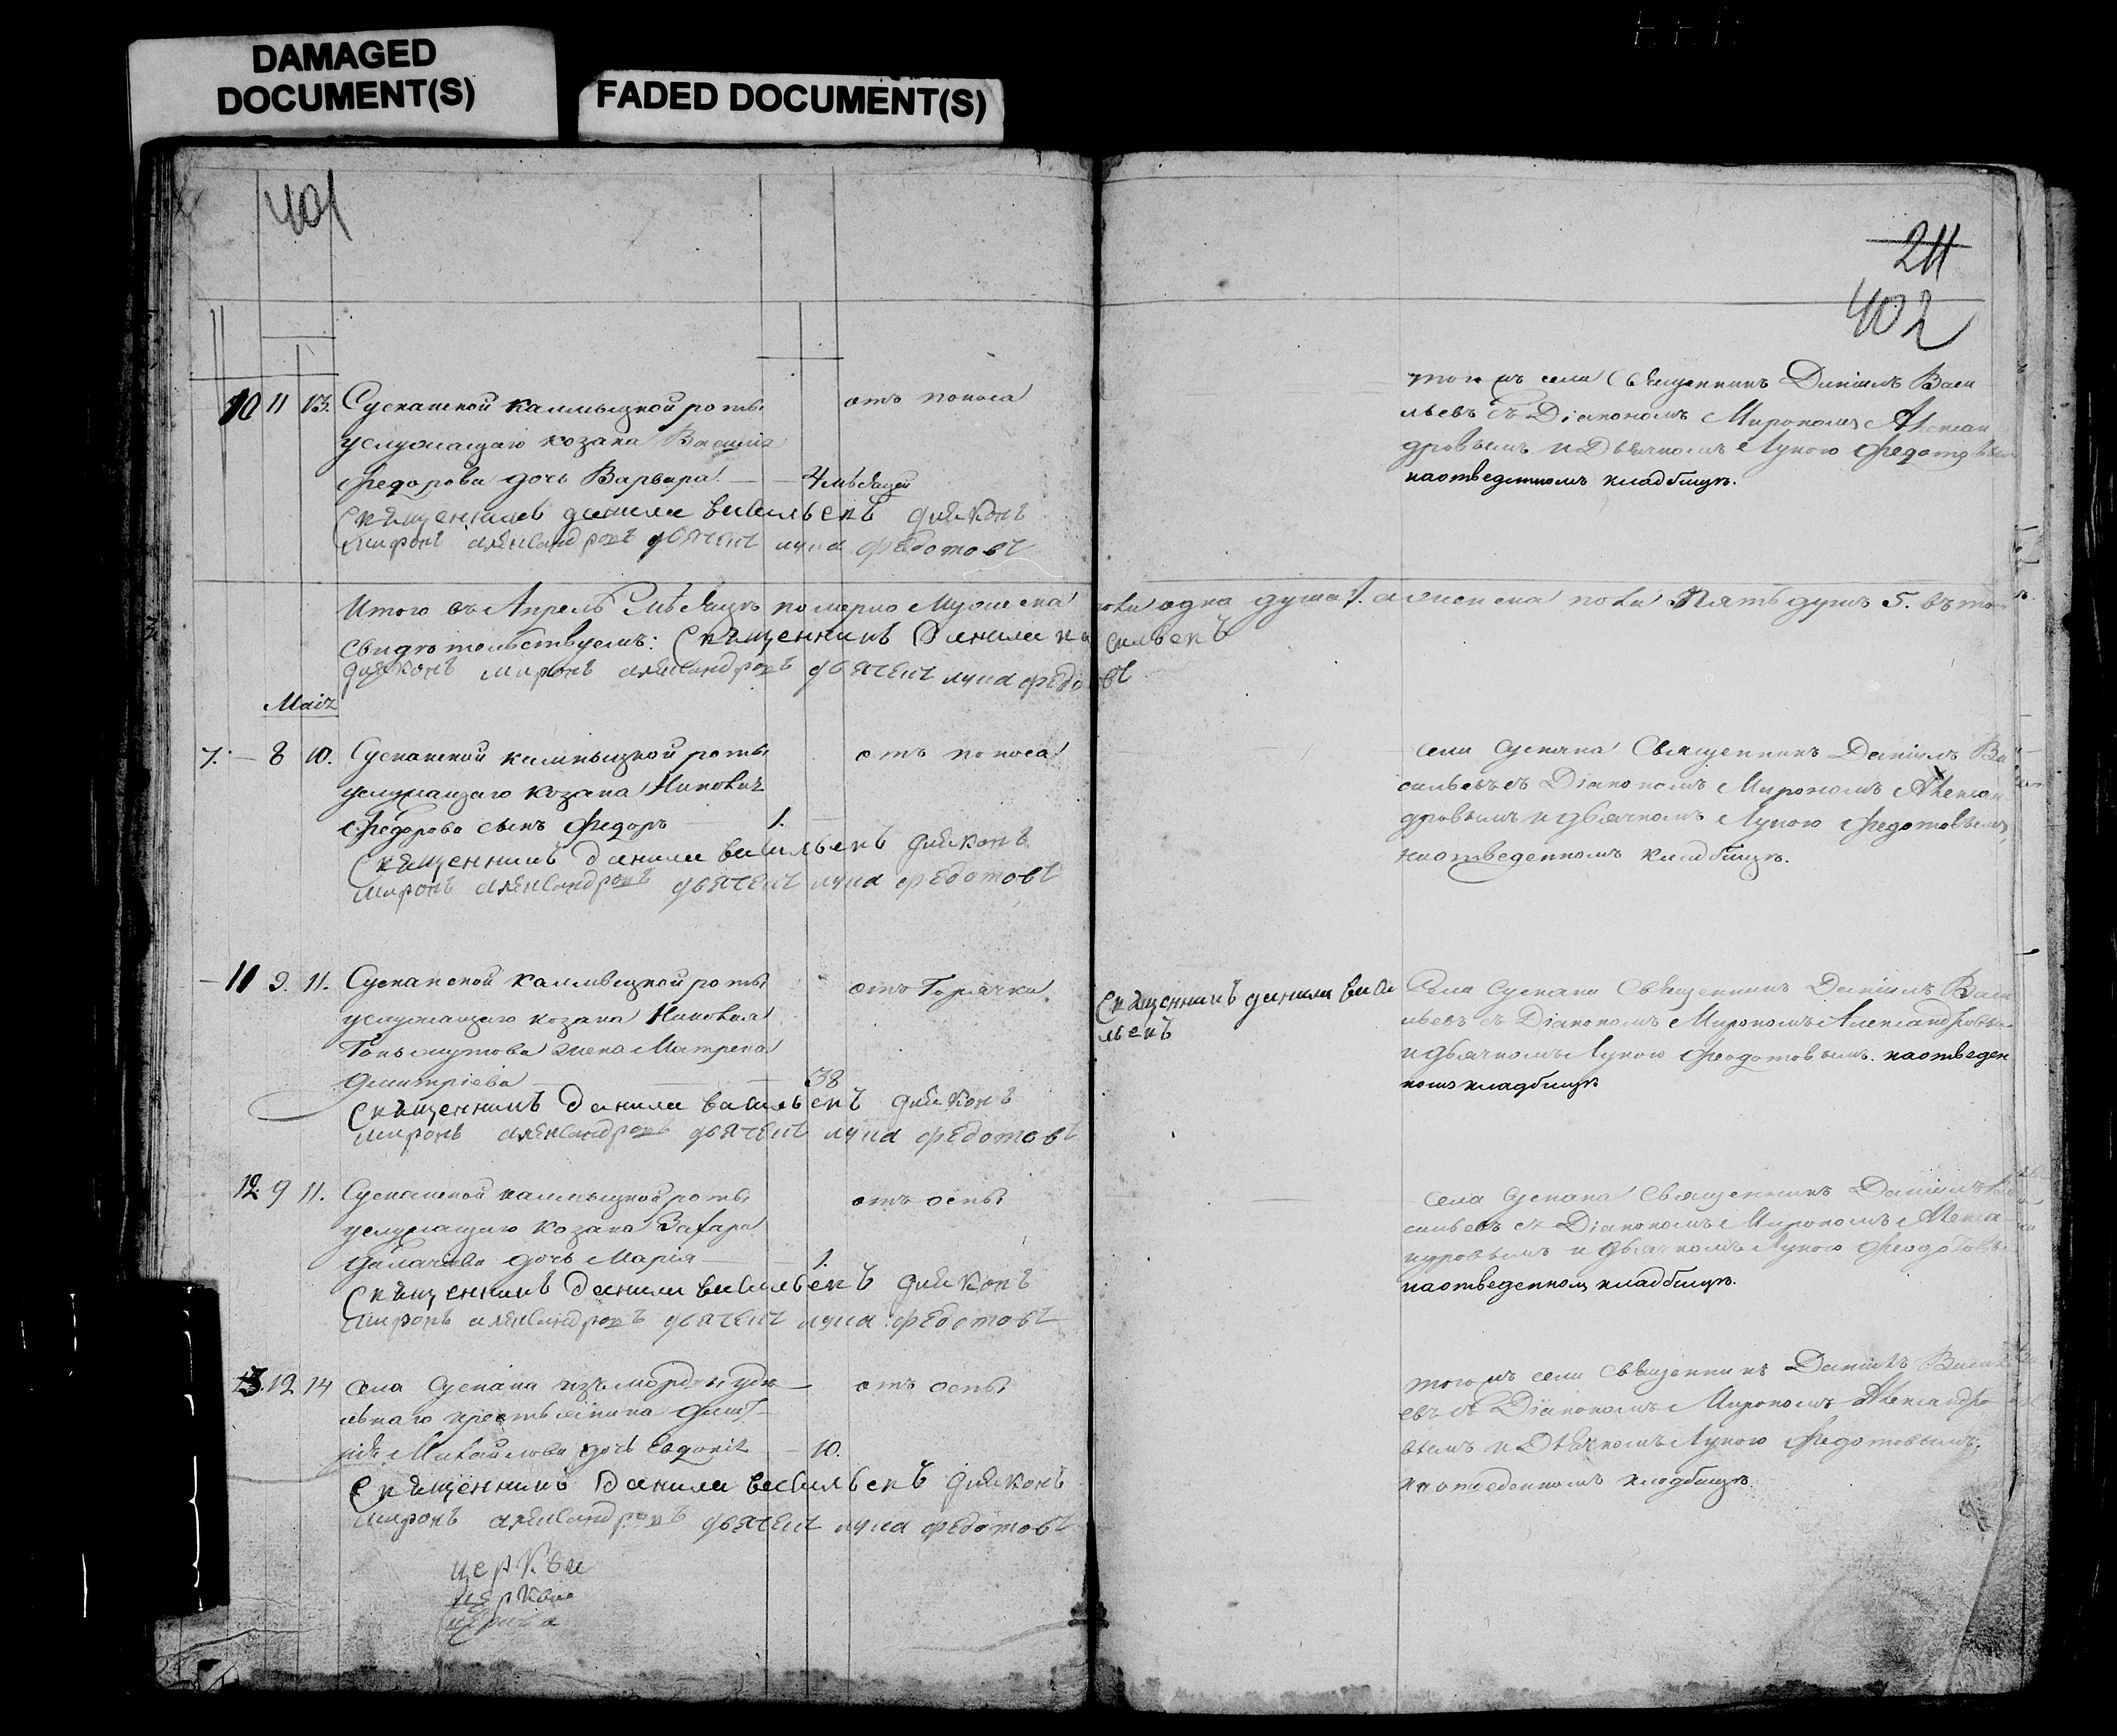 DAMAGED
DOCUMENT(S)
FADED DOCUMENT(S)
401
211
402
10 11 13. Сусканской калмыцкой роты
служащаго козака Василія
Федорова дочь Варвара — 4 мѣсяцей
отъ поноса
Священникъ данила васильевъ дияконъ
миронъ александровъ дьячекъ лука федотовъ
тогожъ села Священникъ Данiилъ Васи
льевъ съ Дiакономъ Мирономъ Александ
дровымъ и Дьячкомъ Лукою Федотовым
наотведенномъ кладбищѣ.
Итого въ Апрелѣ мѣсяцѣ померло Мужеска пола одна душа 1. а женска пола Пять душъ 5. въ том
свидѣтельствуемъ: Священникъ Данила васильевъ
дияконъ миронъ александровъ дьячекъ лука федотовъ
Маiя
7. — 8 10. Сусканской калмыцкой роты
служащаго козака
Федорова сынъ Федоръ — 1.
отъ поноса
Священникъ данила васильевъ дияконъ
миронъ александровъ дьячекъ лука федотовъ
села Сускана Священникъ Данiилъ Ва
сильевъ съ Дiакономъ Мирономъ Алексан
дровымъ и дьячкомъ Лукою Федотовымъ
наотведенномъ кладбищѣ.
— 11 9. 11. Сусканской калмыцкой роты
служащаго козака
жена Матрена
Дмитріева — 38
отъ Горячки
Священникъ данила васильевъ дияконъ
миронъ александровъ дьячекъ лука федотовъ
Священникъ данила васи
льевъ
Села Сускана Священникъ Данiилъ Васи
льевъ съ Дiакономъ Мирономъ Александровы
и дьячкомъ Лукою Феодотовымъ. наотведен
номъ кладбищѣ
12. 9 11. Сусканской калмыцкой роты
служащаго козака Захара
дочь Марія — 1.
отъ оспы
Священникъ данила васильевъ дияконъ
миронъ александровъ дьячекъ лука федотовъ
села Сускана Священникъ Данiилъ Ва
сильевъ съ Дiакономъ Мирономъ Алекса
ндровымъ и дьячкомъ Лукою Феодотовы
наотведенном кладбищѣ.
13. 12 14 села Сускана изъ мордвы удѣ
льнаго крестьянина Дмит
рія Михайлова дочь Евдокія — 10.
отъ оспы
Священникъ данила васильевъ дияконъ
миронъ александровъ дьячекъ лука федотовъ
тогожъ села Священникъ Данiилъ Василь
евъ съ Дiакономъ Мирономъ Александро
вымъ и Дьячкомъ Лукою Федотовымъ
на отведенномъ кладбищѣ.
церкви
церкви